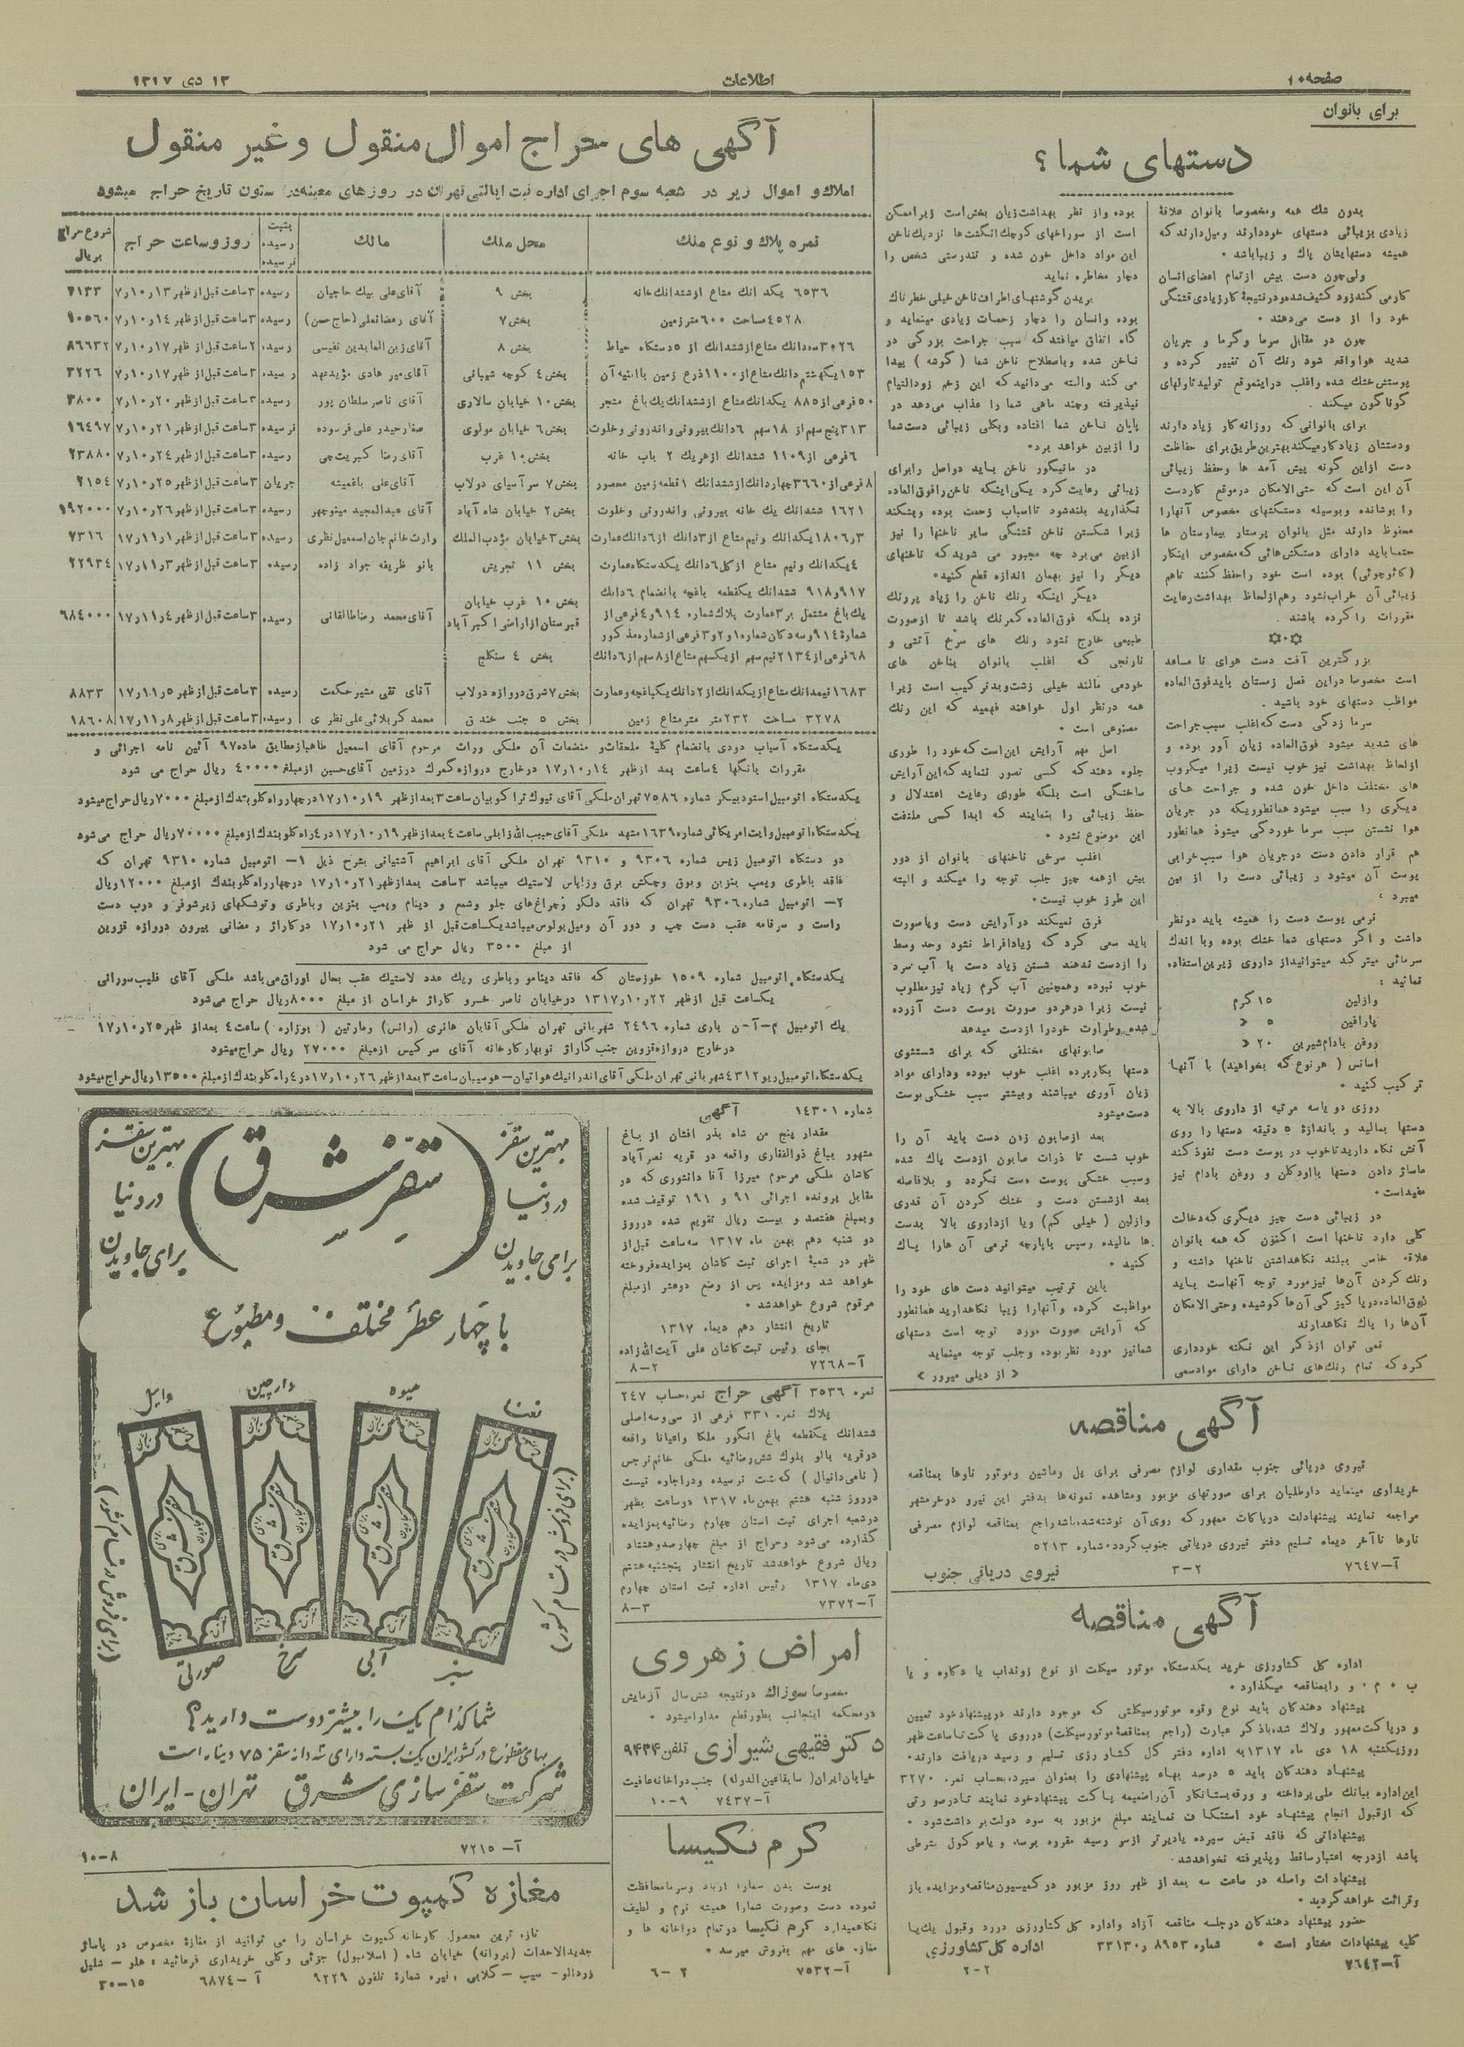 صفحه ۱۰
اطلاعات
۱۳ دی ۱۳۱۷
برای بانوان
دستهای شما؟
بدون شك همه ومخصوصا بانوان علاقۀ
زیادی بزیبائی دستهای خوددارند ومیل دارند که
همیشه دستهایشان پاك و زیبا باشد
ولی چون دست بیش از تمام اعضای انسان
کار می کند زود کثیف شده و در نتیجۀ کار زیادی قشنگی
خود را از دست میدهند
چون در مقابل سرما و گرما و جریان
شدید هوا واقع شود رنك آن تغییر کرده و
پوستش خشك شده واغلب دراینموقع تولید تاولهای
گوناگون میکند
برای بانوانی که روزانه کار زیاد دارند
ودستشان زیاد کار میکند بهترین طریق برای حفاظت
دست ازاین گونه پیش آمد ها وحفظ زیبائی
آن این است که حتی الامکان در موقع کار دست
را پوشانده وبوسیله دستکشهای مخصوص آنها را
محفوظ دارند مثل بانوان پرستار بیمارستان ها
حتما باید دارای دستکش هائی که مخصوص اینکار
(کائوچوئی) بوده است خود را حفظ کنند تا هم
زیبائی آن خراب نشود و هم از لحاظ بهداشت رعایت
مقررات را کرده باشند
بزرگترین آفت دست هوای نا مساعد
است مخصوصا در این فصل زمستان باید فوق العاده
مواظب دستهای خود باشید
سرما زدگی دست که اغلب سبب جراحت
های شدید میشود فوق العاده زیان آور بوده و
از لحاظ بهداشت نیز خوب نیست زیرا میکروب
های مختلف داخل خون شده و جراحت های
دیگری را سبب میشود همانطوریکه در جریان
هوا نشستن سبب سرما خوردگی میشود همانطور
هم قرار دادن دست در جریان هوا سبب خرابی
پوست آن میشود و زیبائی دست را از بین
میبرد
نرمی پوست دست را همیشه باید در نظر
داشت و اگر دستهای شما خشك بوده و با اندك
سرمائی میترکد میتوانید از داروی زیرین استفاده
نمائید:
وازلین ۱۵ گرم
پارافین ۵ »
روغن بادام شیرین ۲۰ »
اسانس (هر نوع که بخواهید) با آنها
ترکیب کنید
روزی دو یا سه مرتبه از داروی بالا به
دستها بمالید و باندازۀ ۵ دقیقه دستها را روی
آتش نگاه دارید تا خوب در پوست دست نفوذ کند
ماساژ دادن دستها با اودکلن و روغن بادام نیز
مفید است
در زیبائی دست چیز دیگری که دخالت
کلی دارد ناخنها است اکنون که همه بانوان
علاقه خاصی ببلند نگاهداشتن ناخنها داشته و
رنك کردن آن ها نیز مورد توجه آنهاست باید
فوق العاده در پاکیزگی آن ها کوشیده و حتی الامکان
آن ها را پاك نگاهدارند
نمی توان از ذکر این نکته خودداری
کرد که تمام رنك های ناخن دارای مواد سمی
بوده و از نظر بهداشت زیان بخش است زیرا ممکن
است از سوراخهای کوچك انگشت ها نزدیك ناخن
این مواد داخل خون شده و تندرستی شخص را
دچار مخاطره نماید
بریدن گوشتهای اطراف ناخن خیلی خطر ناك
بوده وانسان را دچار زحمات زیادی مینماید و
گاه اتفاق میافتد که سبب جراحت بزرگی در
ناخن شده و باصطلاح ناخن شما (گوشه) پیدا
می کند والبته می دانید که این زخم زود التیام
نپذیرفته و چند ماهی شما را عذاب می دهد در
پایان ناخن شما افتاده و بکلی زیبائی دست شما
را از بین خواهد برد
در مانیکور ناخن باید دو اصل را برای
زیبائی رعایت کرد یکی اینکه ناخن را فوق العاده
نگذارید بلند شود تا اسباب زحمت بوده و بشکند
زیرا شکستن ناخن قشنگی سایر ناخنها را نیز
از بین می برد چه مجبور می شوید که ناخنهای
دیگر را نیز بهمان اندازه قطع کنید
دیگر اینکه رنك ناخن را زیاد پر رنك
نزده بلکه فوق العاده کمرنك باشد تا از صورت
طبیعی خارج نشود رنك های سرخ آتشی و
نارنجی که اغلب بانوان بناخن های
خود می مالند خیلی زشت و بد ترکیب است زیرا
همه در نظر اول خواهند فهمید که این رنك
مصنوعی است
اصل مهم آرایش این است که خود را طوری
جلوه دهند که کسی تصور ننماید که این آرایش
ساختگی است بلکه طوری رعایت اعتدلال و
حفظ زیبائی را بنمایند که ابدا کسی ملتفت
این موضوع نشود
اغلب سرخی ناخنهای بانوان از دور
بیش از همه چیز جلب توجه را میکند و البته
این طرز خوب نیست
فرق نمیکند در آرایش دست و یا صورت
باید سعی کرد که زیاد افراط نشود وحد وسط
را از دست ندهند شستن زیاد دست با آب سرد
خوب نبوده و همچنین آب گرم زیاد نیز مطلوب
نیست زیرا در هر دو صورت پوست دست آزرده
شده و طراوت خود را از دست میدهد
صابونهای مختلفی که برای شستشوی
دستها بکار برده اغلب خوب نبوده و دارای مواد
زیان آوری میباشند و بیشتر سبب خشکی پوست
دست میشود
بعد از صابون زدن دست باید آن را
خوب شست تا ذرات صابون از دست پاك شده
وسبب خشکی پوست دست نگردد و بلافاصله
بعد از شستن دست و خشك کردن آن قدری
وازلین (خیلی کم) ویا از داروی بالا بدست
ها مالیده و سپس با پارچه نرمی آن ها را پاك
کنید
باین ترتیب میتوانید دست های خود را
مواظبت کرده و آنها را زیبا نگاهدارید همانطور
که آرایش صورت مورد توجه است دستهای
شما نیز مورد نظر بوده و جلب توجه مینماید
« از دیلی میرور »
آگهی مناقصه
نیروی دریائی جنوب مقداری لوازم مصرفی برای پل و ماشین و موتور ناوها بمناقصه
خریداری مینماید داوطلبان برای صورتهای مزبور و مشاهده نمونه ها بدفتر این نیرو در خرمشهر
مراجعه نمایند پیشنهادات در پاکات ممهور که روی آن نوشته شده باشد راجع بمناقصه لوازم مصرفی
ناوها تا آخر دیماه تسلیم دفتر نیروی دریائی جنوب گردد. شماره ۵۲۱۳
آ-۷۶۴۷ ۳-۲ نیروی دریائی جنوب
آگهی مناقصه
اداره کل کشاورزی خرید یکدستگاه موتور سیکلت از نوع زونداب یا دکاوه و یا
ب . م . و را بمناقصه میگذارد
پیشنهاد دهندگان باید نوع وقوه موتورسیکلتی که موجود دارند در پیشنهاد خود تعیین
و در پاکت ممهور ولاك شده با ذکر عبارت (راجع بمناقصۀ موتورسیکلت) در روی پاکت تا ساعت ظهر
روز یکشنبه ۱۸ دی ماه ۱۳۱۷ به اداره دفتر کل کشاورزی تسلیم و رسید دریافت دارند
پیشنهاد دهندگان باید ۵ درصد بهاء پیشنهادی را بعنوان سپرده بحساب نمره ۳۲۷۰
این اداره ببانك ملی پرداخته و ورقه بستانکار آن را ضمیمه پاکت پیشنهاد خود نمایند تا در صورتی
که از قبول انجام پیشنهاد خود استنکاف نمایند مبلغ مزبور به سود دولت برداشت شود
پیشنهاداتی که فاقد قبض سپرده یا دیرتر از سر رسید مقرره برسد و یا موکول بشرطی
باشد از درجه اعتبار ساقط و پذیرفته نخواهد شد
پیشنهادات واصله در ساعت سه بعد از ظهر روز مزبور در کمیسیون مناقصه و مزایده باز
و قرائت خواهد گردید
حضور پیشنهاد دهندگان در جلسه مناقصه آزاد و اداره کل کشاورزی در رد و قبول یك یا
کلیه پیشنهادات مختار است شماره ۸۹۵۳ ر ۳۳۱۳۰ اداره کل کشاورزی
آ-۷۶۴۲ ۲-۲
آگهی های حراج اموال منقول و غیر منقول
املاك و اموال زیر در شعبه سوم اجرای اداره ثبت ایالتی تهران در روزهای معینه در ستون تاریخ حراج میشود
نمره پلاك و نوع ملك | محل ملك | مالك | بثبت رسیده نرسیده | روز و ساعت حراج | شروع حراج بریال
۶۵۳۶ یکدانك مشاع از ششدانك خانه | بخش ۹ | آقای علی بیك حاجیان | رسیده | ۳ ساعت قبل از ظهر ۱۳ر۱۰ر۱۷
۴۵۲۸ مساحت ۶۰۰ متر زمین | بخش ۷ | آقای رمضانعلی (حاج حسن) | رسیده | ۳ ساعت قبل از ظهر ۱۴ر۱۰ر۱۷ | ۹۰۵۶۰
۳۰۲۶ سه دانك مشاع از ششدانك از ۵ دستگاه حیاط | بخش ۸ | آقای زین العابدین نفیسی | رسیده | ۲ ساعت قبل از ظهر ۱۷ر۱۰ر۱۷ | ۸۶۶۳۲
۱۵۳ یکهشتم دانك مشاع از ۱۱۰۰ ذرع زمین با ابنیه آن | بخش ۴ کوچه شیبانی | آقای میر هادی مؤیدعهد | رسیده | ۳ ساعت قبل از ظهر ۱۷ر۱۰ر۱۷ | ۳۲۲۶
۵۰ فرعی از ۸۸۵ یکدانك مشاع از ششدانك یك باغ مشجر | بخش ۱۰ خیابان سالاری | آقای ناصر سلطان پور | رسیده | ۳ ساعت قبل از ظهر ۲۰ر۱۰ر۱۷ | ۳۸۰۰
۳۱۳ پنج سهم از ۱۸ سهم ۶ دانك بیرونی و اندرونی و خلوت | بخش ۶ خیابان مولوی | صفار حیدر علی فرسوده | نرسیده | ۳ ساعت قبل از ظهر ۲۱ر۱۰ر۱۷ | ۱۶۴۹۷
۶ فرعی از ۱۱۰۹ ششدانك از هریك ۲ باب خانه | بخش ۱۰ غرب | آقای رضا کبریت چی | رسیده | ۳ ساعت قبل از ظهر ۲۴ر۱۰ر۱۷ | ۲۳۸۸۰
۸ فرعی از ۳۶۶۰ چهار دانك از ششدانك ۱ قطعه زمین محصور | بخش ۷ سر آسیای دولاب | آقای علی باغمیشه | جریان | ۳ ساعت قبل از ظهر ۲۵ر۱۰ر۱۷ | ۲۱۵۴
۱۶۲۱ ششدانك یك خانه بیرونی واندرونی و خلوت | بخش ۲ خیابان شاه آباد | آقای عبدالمجید منوچهر | رسیده | ۳ ساعت قبل از ظهر ۲۶ر۱۰ر۱۷ | ۱۹۲۰۰۰
۱۸۰۶ر۳ یکدانك ونیم مشاع از ۳ دانك از ۶ دانك عمارت | بخش ۳ خیابان مؤدب الملك | وارث خانم جان اسمعیل نظری | رسیده | ۳ ساعت قبل از ظهر ۱ر۱۱ر۱۷ | ۷۳۱۶
۴ یکدانك ونیم مشاع از کل ۶ دانك یکدستگاه عمارت | بخش ۱۱ تجریش | بانو ظریفه جواد زاده | رسیده | ۳ ساعت قبل از ظهر ۳ر۱۱ر۱۷ | ۲۲۹۳۴
۹۱۷ و ۹۱۸ ششدانك یکقطعه باغچه بانضمام ۶ دانك
یك باغ مشتمل بر ۳ عمارت پلاك شماره ۹۱۴ و ۴ فرعی از
شمارۀ ۹۱۴ و سه دکان شماره ۱ و ۲ و ۳ فرعی از شماره مذکور | بخش ۱۰ غرب خیابان قبرستان از اراضی اکبر آباد | آقای محمد رضا طالقانی | رسیده | ۳ ساعت قبل از ظهر ۴ر۱۱ر۱۷ | ۶۸۴۰۰۰
۶۸ فرعی از ۲۱۳۴ نیم سهم از یکسهم مشاع از ۸ سهم از ۶ دانك | بخش ۴ سنگلج
۱۶۸۳ نیمدانك مشاع از یکدانك از ۲ دانك یکباغچه و عمارت | بخش ۷ شرق دروازه دولاب | آقای تقی مشیر حکمت | رسیده | ۳ ساعت قبل از ظهر ۵ر۱۱ر۱۷ | ۸۸۳۳
۳۲۷۸ مساحت ۲۳۲ متر متر مشاع زمین | بخش ۵ جنب خندق | محمد کربلائی علی نظری | رسیده | ۳ ساعت قبل از ظهر ۸ر۱۱ر۱۷ | ۱۸۶۰۸
یکدستگاه آسیاب دودی بانضمام کلیۀ ملحقات و منضمات آن ملکی وراث مرحوم آقای اسمعیل طاهباز مطابق ماده ۹۷ آئین نامه اجرائی و
مقررات بانگها ۴ ساعت بعد از ظهر ۱۴ر۱۰ر۱۷ در خارج دروازه گمرك در زمین آقای حسین از مبلغ ۴۰۰۰۰ ریال حراج می شود
یکدستگاه اتومبیل استودبیکر شماره ۷۵۸۶ تهران ملکی آقای نیوك تراکوبیان ساعت ۳ بعد از ظهر ۱۹ر۱۰ر۱۷ در چهار راه کلوبندك از مبلغ ۷۰۰۰ ریال حراج میشود
یکدستگاه اتومبیل وایت امریکائی شماره ۱۶۳۹ مشهد ملکی آقای حبیب الله زابلی ساعت ۴ بعد از ظهر ۱۹ر۱۰ر۱۷ در ۴ راه کلوبندك از مبلغ ۷۰۰۰۰ ریال حراج می شود
دو دستگاه اتومبیل زیس شماره ۹۳۰۶ و ۹۳۱۰ تهران ملکی آقای ابراهیم آشتیانی بشرح ذیل ۱- اتومبیل شماره ۹۳۱۰ تهران که
فاقد باطری وپمپ بنزین و بوق و چکش برق و زاپاس لاستیك میباشد ۳ ساعت بعد از ظهر ۲۱ر۱۰ر۱۷ در چهار راه کلوبندك از مبلغ ۱۲۰۰۰ ریال
۲- اتومبیل شماره ۹۳۰۶ تهران که فاقد دلکو و چراغ های جلو وشمع و دینام وپمپ بنزین و باطری وتوشکهای زیر شوفر و درب دست
راست و سرقامه عقب دست چپ و دور آن و میل پولوس میباشد یکساعت قبل از ظهر ۲۱ر۱۰ر۱۷ در کاراژ رمضانی بیرون دروازه قزوین
از مبلغ ۳۵۰۰ ریال حراج می شود
یکدستگاه اتومبیل شماره ۱۵۰۹ خوزستان که فاقد دینامو و باطری و یك عدد لاستیك عقب بحال اوراق می باشد ملکی آقای فلیپ سورائی
یکساعت قبل از ظهر ۲۲ر۱۰ر۱۳۱۷ در خیابان ناصر خسرو کاراژ خراسان از مبلغ ۸۰۰۰ ریال حراج می شود
یك اتومبیل م-آ-ن باری شماره ۲۴۹۶ شهربانی تهران ملکی آقایان هانری (وانس) و مارتین (بوزاره) ساعت ۴ بعد از ظهر ۲۵ر۱۰ر۱۷
در خارج دروازه قزوین جنب گاراژ نوبهار کارخانه آقای سرکیس از مبلغ ۲۷۰۰۰ ریال حراج میشود
یکدستگاه اتومبیل ریو ۴۳۱۲ شهربانی تهران ملکی آقای اندرانیك هواتیان-هوسپیان ساعت ۳ بعد از ظهر ۲۶ر۱۰ر۱۷ در ۴ راه کلوبندك از مبلغ ۱۳۵۰۰ ریال حراج میشود
شماره ۱۴۳۰۱ آگهی
مقدار پنج من شاه بذر افشان از باغ
مشهور بباغ ذوالفقاری واقعه در قریه نصر آباد
کاشان ملکی مرحوم میرزا آقا دانشوری که در
مقابل پرونده اجرائی ۹۱ و ۱۹۱ توقیف شده
و بمبلغ هفتصد و بیست ریال تقویم شده در روز
دو شنبه دهم بهمن ماه ۱۳۱۷ سه ساعت قبل از
ظهر در شعبۀ اجرای ثبت کاشان بمزایده فروخته
خواهد شد و مزایده پس از وضع دو عشر از مبلغ
مرقوم شروع خواهد شد
تاریخ انتشار دهم دیماه ۱۳۱۷
بجای رئیس ثبت کاشان علی آیت الله زاده
آ-۷۲۶۸ ۸-۲
نمره ۳۵۳۶ آگهی حراج نمره حساب ۲۴۷
پلاك نمره ۳۳۱ فرعی از سی و سه اصلی
ششدانك یکقطعه باغ انگور ملکا و اعیانا واقعه
در قریه بالو بلوك شش رضائیه ملکی خانم نرجس
(نامی دانیال) که ثبت نرسیده و در اجاره نیست
در روز شنبه هشتم بهمن ماه ۱۳۱۷ دو ساعت بظهر
در شعبه اجرای ثبت استان چهارم رضائیه بمزایده
گذارده می شود و حراج از مبلغ چهار صد و هشتاد
ریال شروع خواهد شد تاریخ انتشار پنجشنبه هشتم
دی ماه ۱۳۱۷ رئیس اداره ثبت استان چهارم
آ-۷۳۷۲ ۸-۳
امراض زهروی
مخصوصا سوزاك در نتیجه شش سال آزمایش
در محکمه اینجانب بطور قطع مداوا میشود
دکتر فقیهی شیرازی تلفن ۹۴۳۴
خیابان ایران (سابقا عین الدوله) جنب دواخانه عافیت
آ-۷۴۳۷ ۱۰-۹
کرم نکیسا
پوست بدن شما را از باد و سرما محافظت
نموده دست و صورت شما را همیشه نرم و لطیف
نگاهمیدارد کرم نکیسا در تمام دواخانه ها و
مغازه های مهم بفروش میرسد
آ-۷۵۳۲ ۶-۲
سقز شرق
بهترین سقز
در دنیا
برای جاویدن
بهترین سقز
در دنیا
برای جاویدن
با چهار عطر مختلف و مطبوع
نعنا
میوه
دارچین
وانیل
سقز شرق
سقز شرق
سقز شرق
سقز شرق
سبز
آبی
سرخ
صورتی
(برای فروش در تمام کشور)
(برای فروش در تمام کشور)
شما کدام یك را بیشتر دوست دارید؟
بهای مقطوع در کشور ایران یك بسته دارای شش دانه سقز ۷۵ دینار است
شرکت سقز سازی شرق تهران - ایران
آ-۷۲۱۵ ۱۰-۸
مغازه کمپوت خراسان باز شد
تازه ترین محصول کارخانه کمپوت خراسان را می توانید از مغازۀ مخصوص در پاساژ
جدید الاحداث (پروانه) خیابان شاه (اسلامبول) جزئی و کلی خریداری فرمائید: هلو - شلیل
زردآلو - سیب - گلابی و غیره شمارۀ تلفون ۹۲۲۹ آ-۶۸۷۴ ۳۰-۱۵